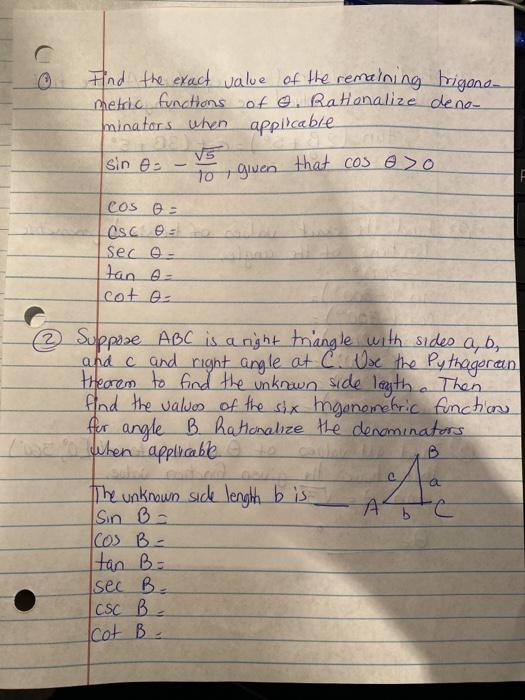 ① Find the exact value of the remaining trigono-
metric functions of θ. Rationalize deno-
minators when applicable
sin θ = - √5/10, given that cos θ > 0
cos θ =
csc θ =
sec θ =
tan θ =
cot θ =
② Suppose ABC is a right triangle with sides a, b,
and c and right angle at C. Use the Pythagorean
theorem to find the unknown side length. Then
find the values of the six trigonometric functions
for angle B Rationalize the denominators
when applicable
B
c a
A b C
The unknown side length b is ___
Sin B =
Cos B =
tan B =
sec B =
csc B =
cot B =